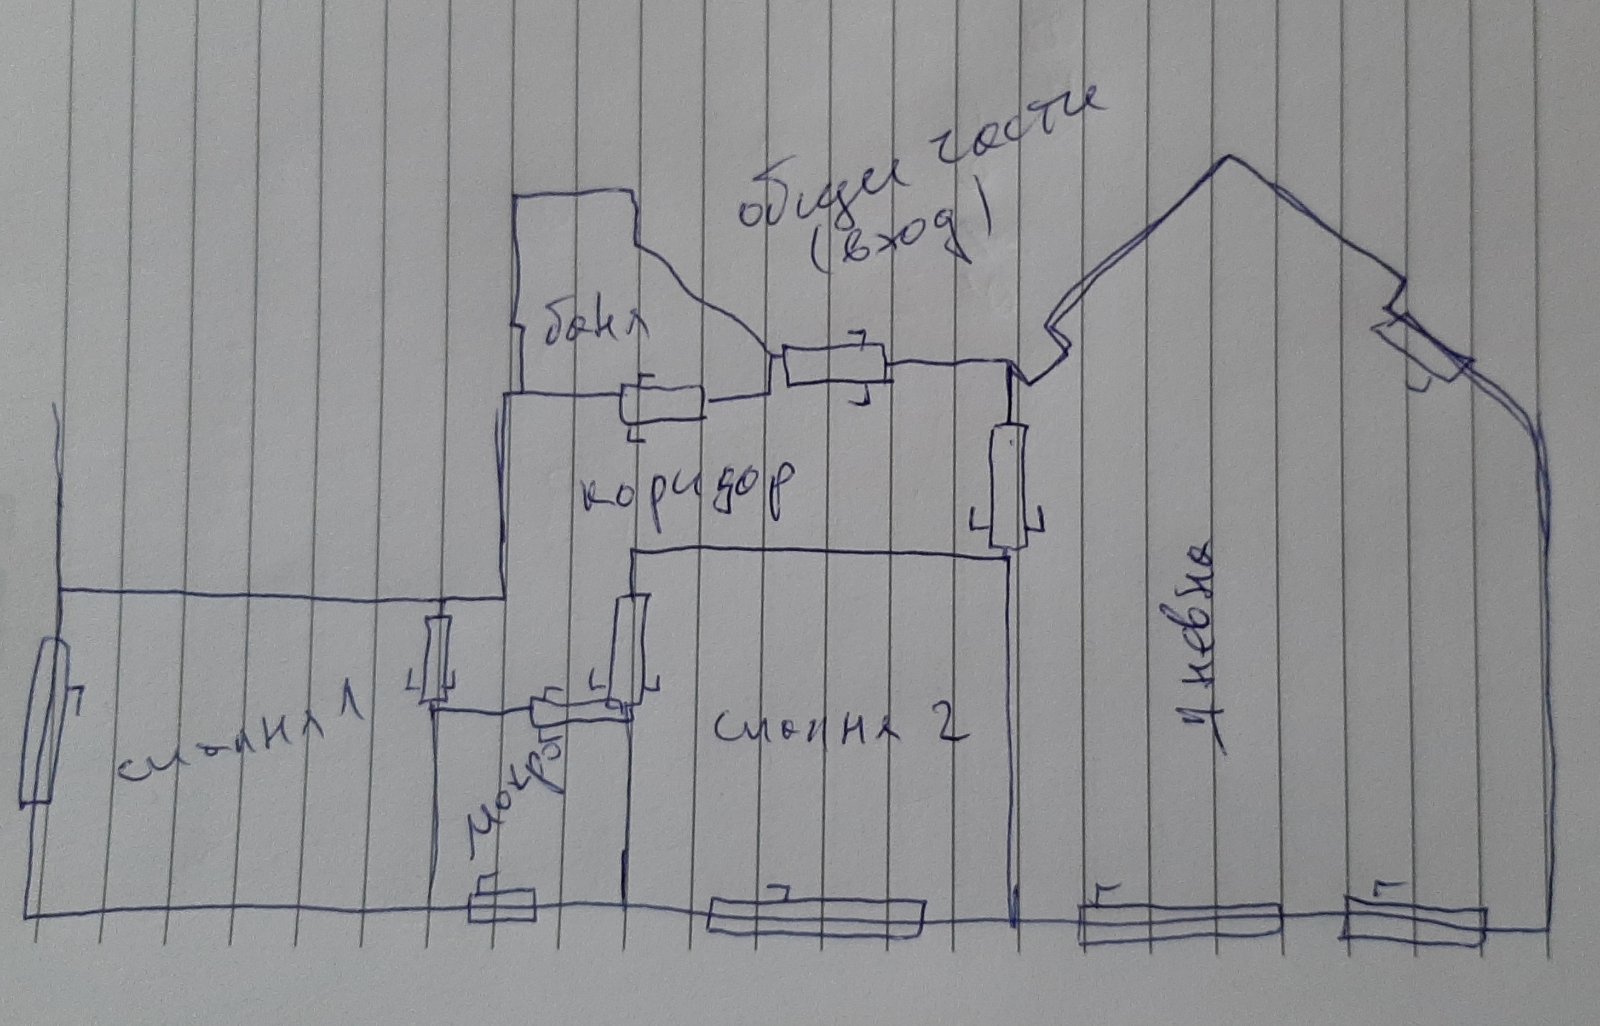 общи части
(вход)
баня
коридор
спалня 1
мокро
спалня 2
дневна